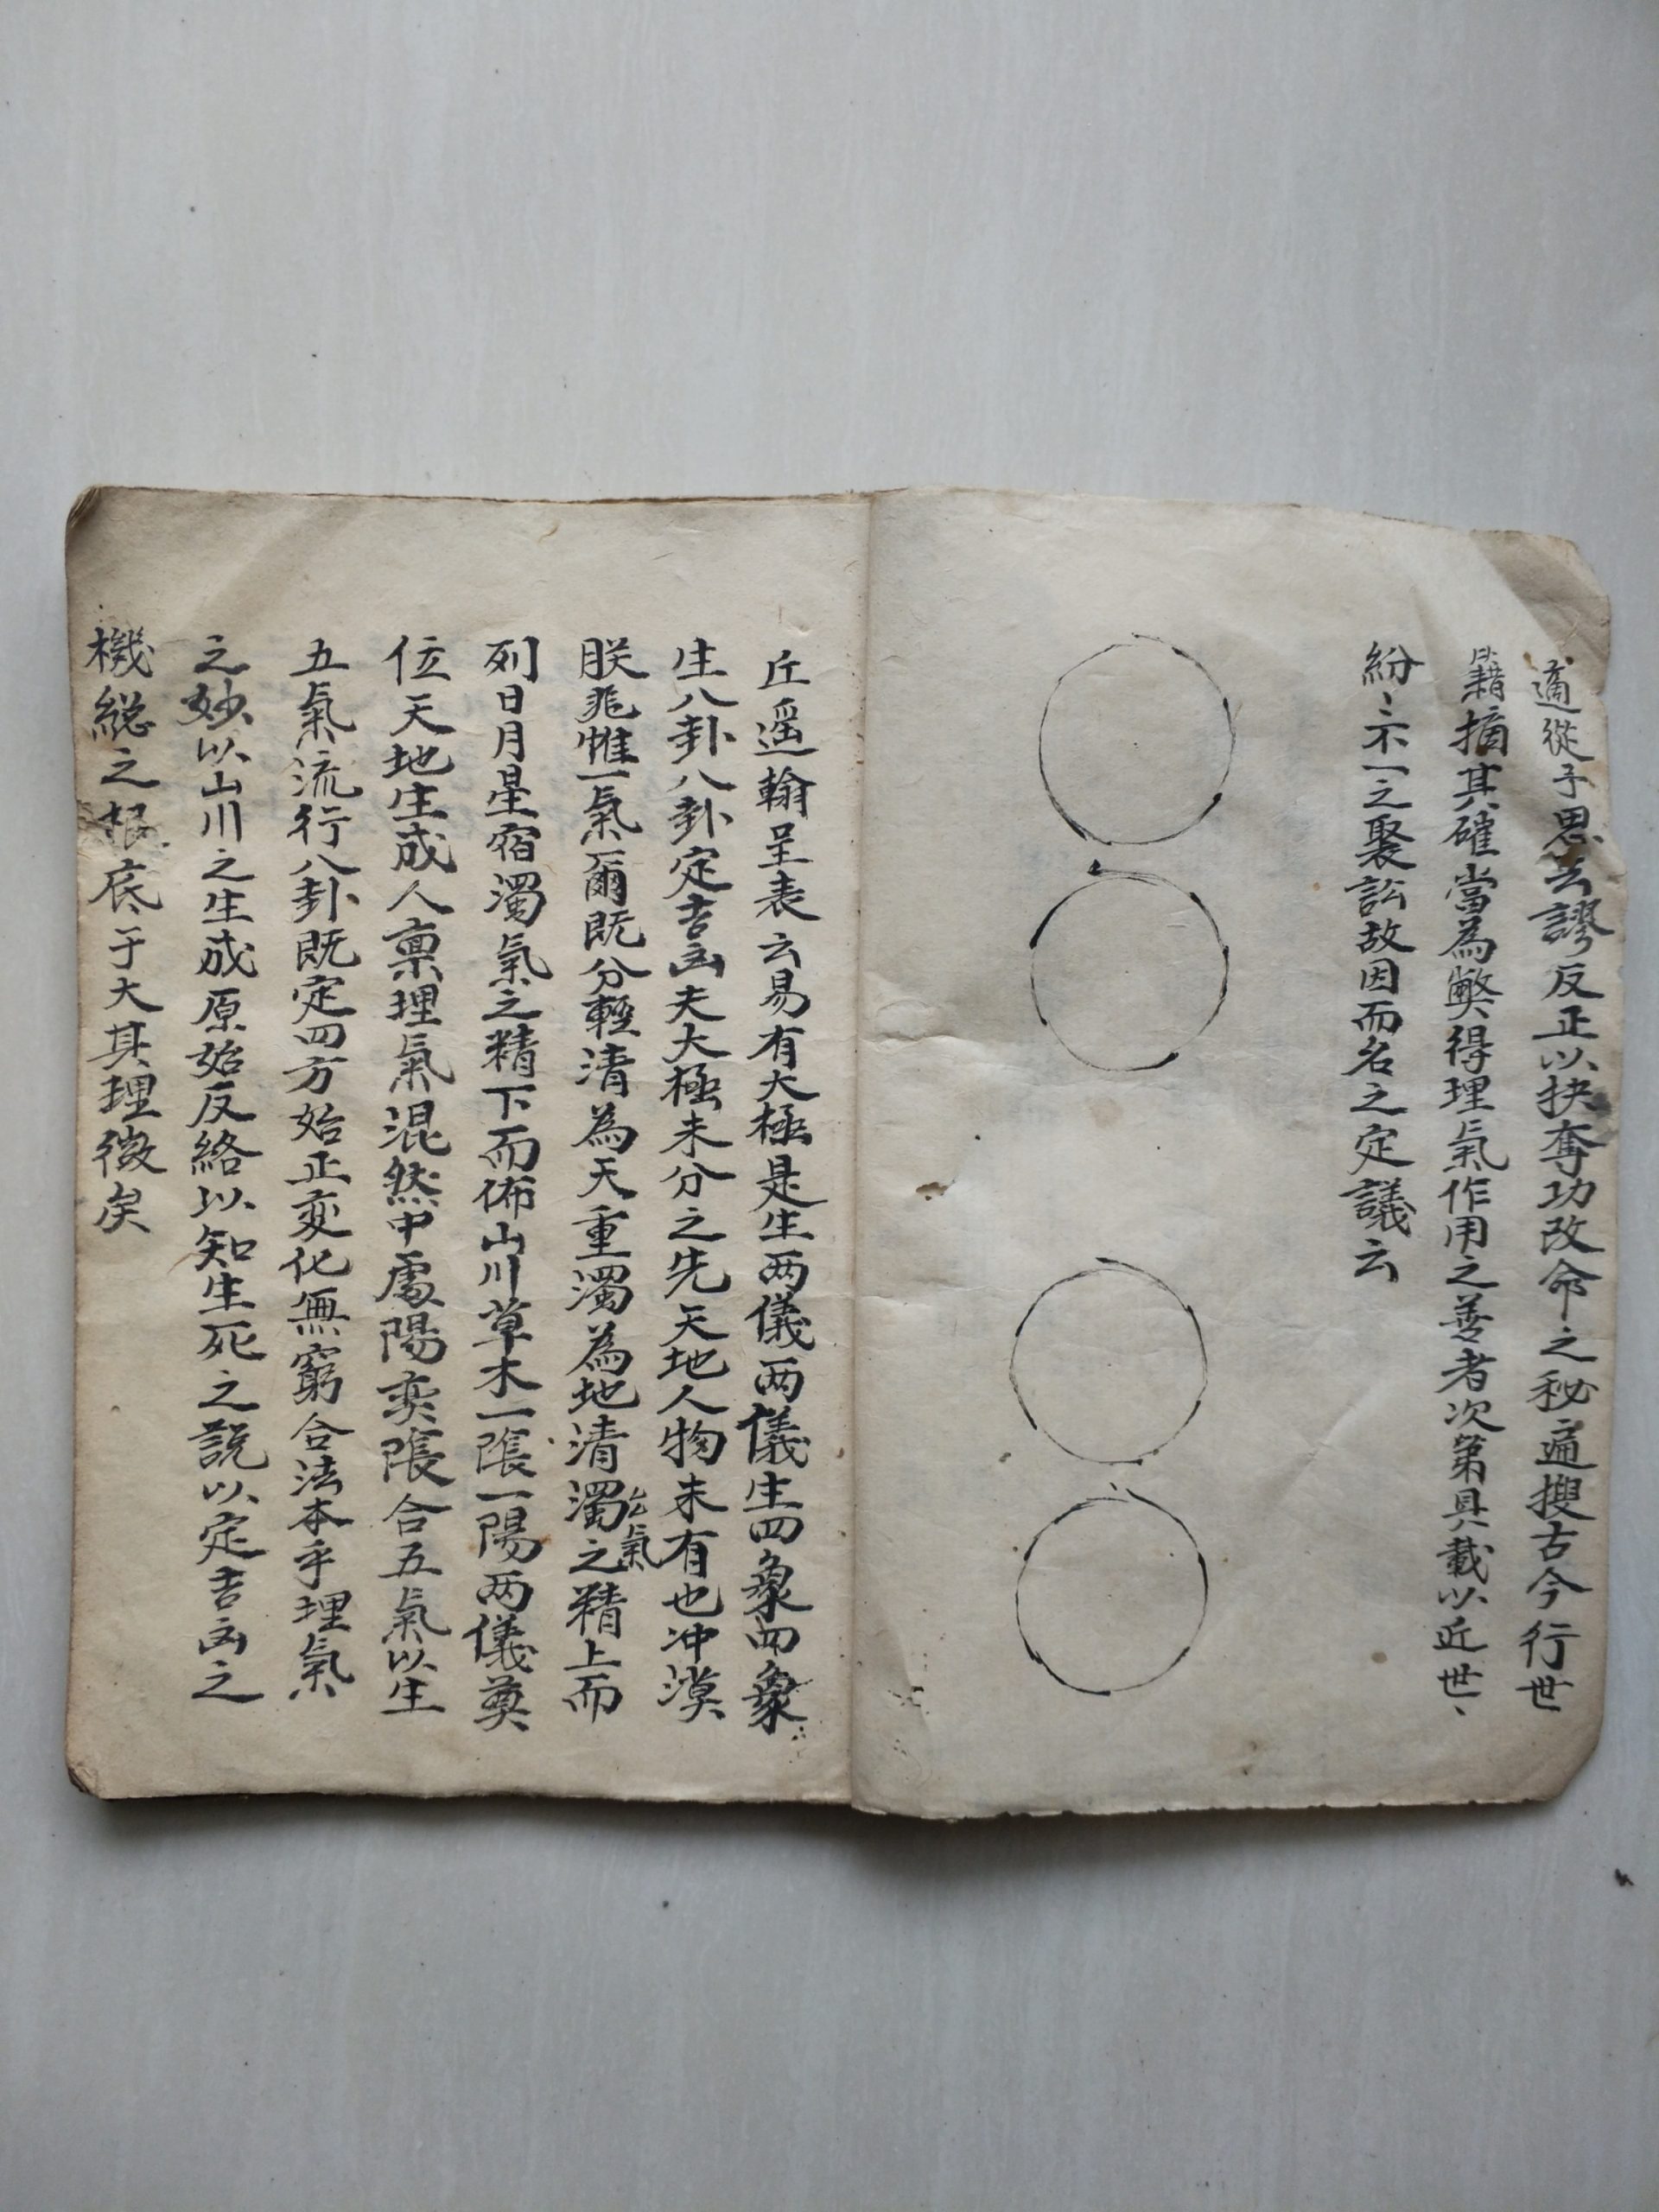 適從予思去謬反正以抉奪功改命之秘遍搜古今行世
籍摘其確當為獘得理氣作用之善者次第具載以近世、
紛〻不一之聚訟故因而名之定議云
丘遥翰呈表云易有大極是生两儀两儀生四象四象
生八卦八卦定吉凶夫大極未分之先天地人物未有也冲漠
朕兆惟一氣爾既分輕清為天重濁為地清濁之精上而
公氣
列日月星宿濁氣之精下而佈山川草木一陰一陽两儀奠
位天地生成人禀理氣混然中處陽奕陰合五氣以生
五氣流行八卦既定四方始正変化無窮合法本乎理氣
之妙以山川之生成原始反終以知生死之說以定吉凶之
機総之根底于大其理微矣